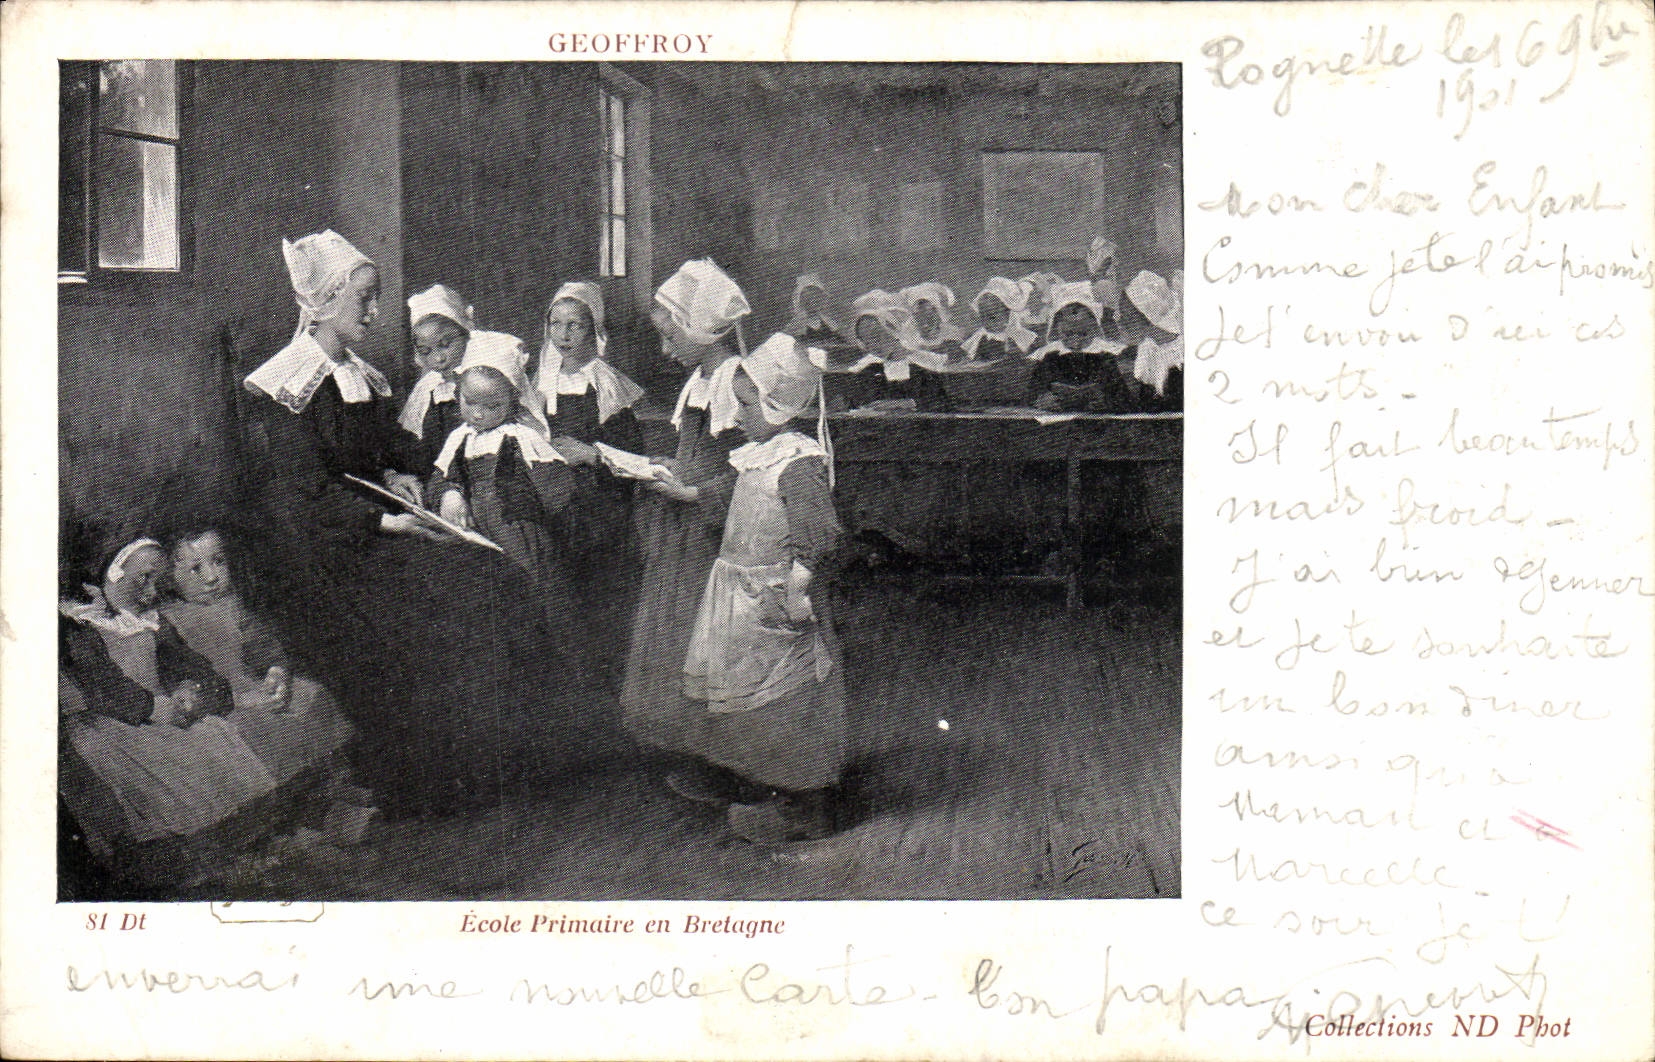 GEOFFROY
les 6 9bre
1901
Mon cher Enfant
Comme je te l'ai promis
Je t'envoie d'ici ces
2 mots -
Il fait beau temps
mais froid -
J'ai bien déjeuner
et je te souhaite
un bon diner
ainsi qu'a
Maman et a
Marcelle -
ce soir je t'
enverrai une nouvelle Carte - Ton papa
81 Dt
École Primaire en Bretagne
Collections ND Phot